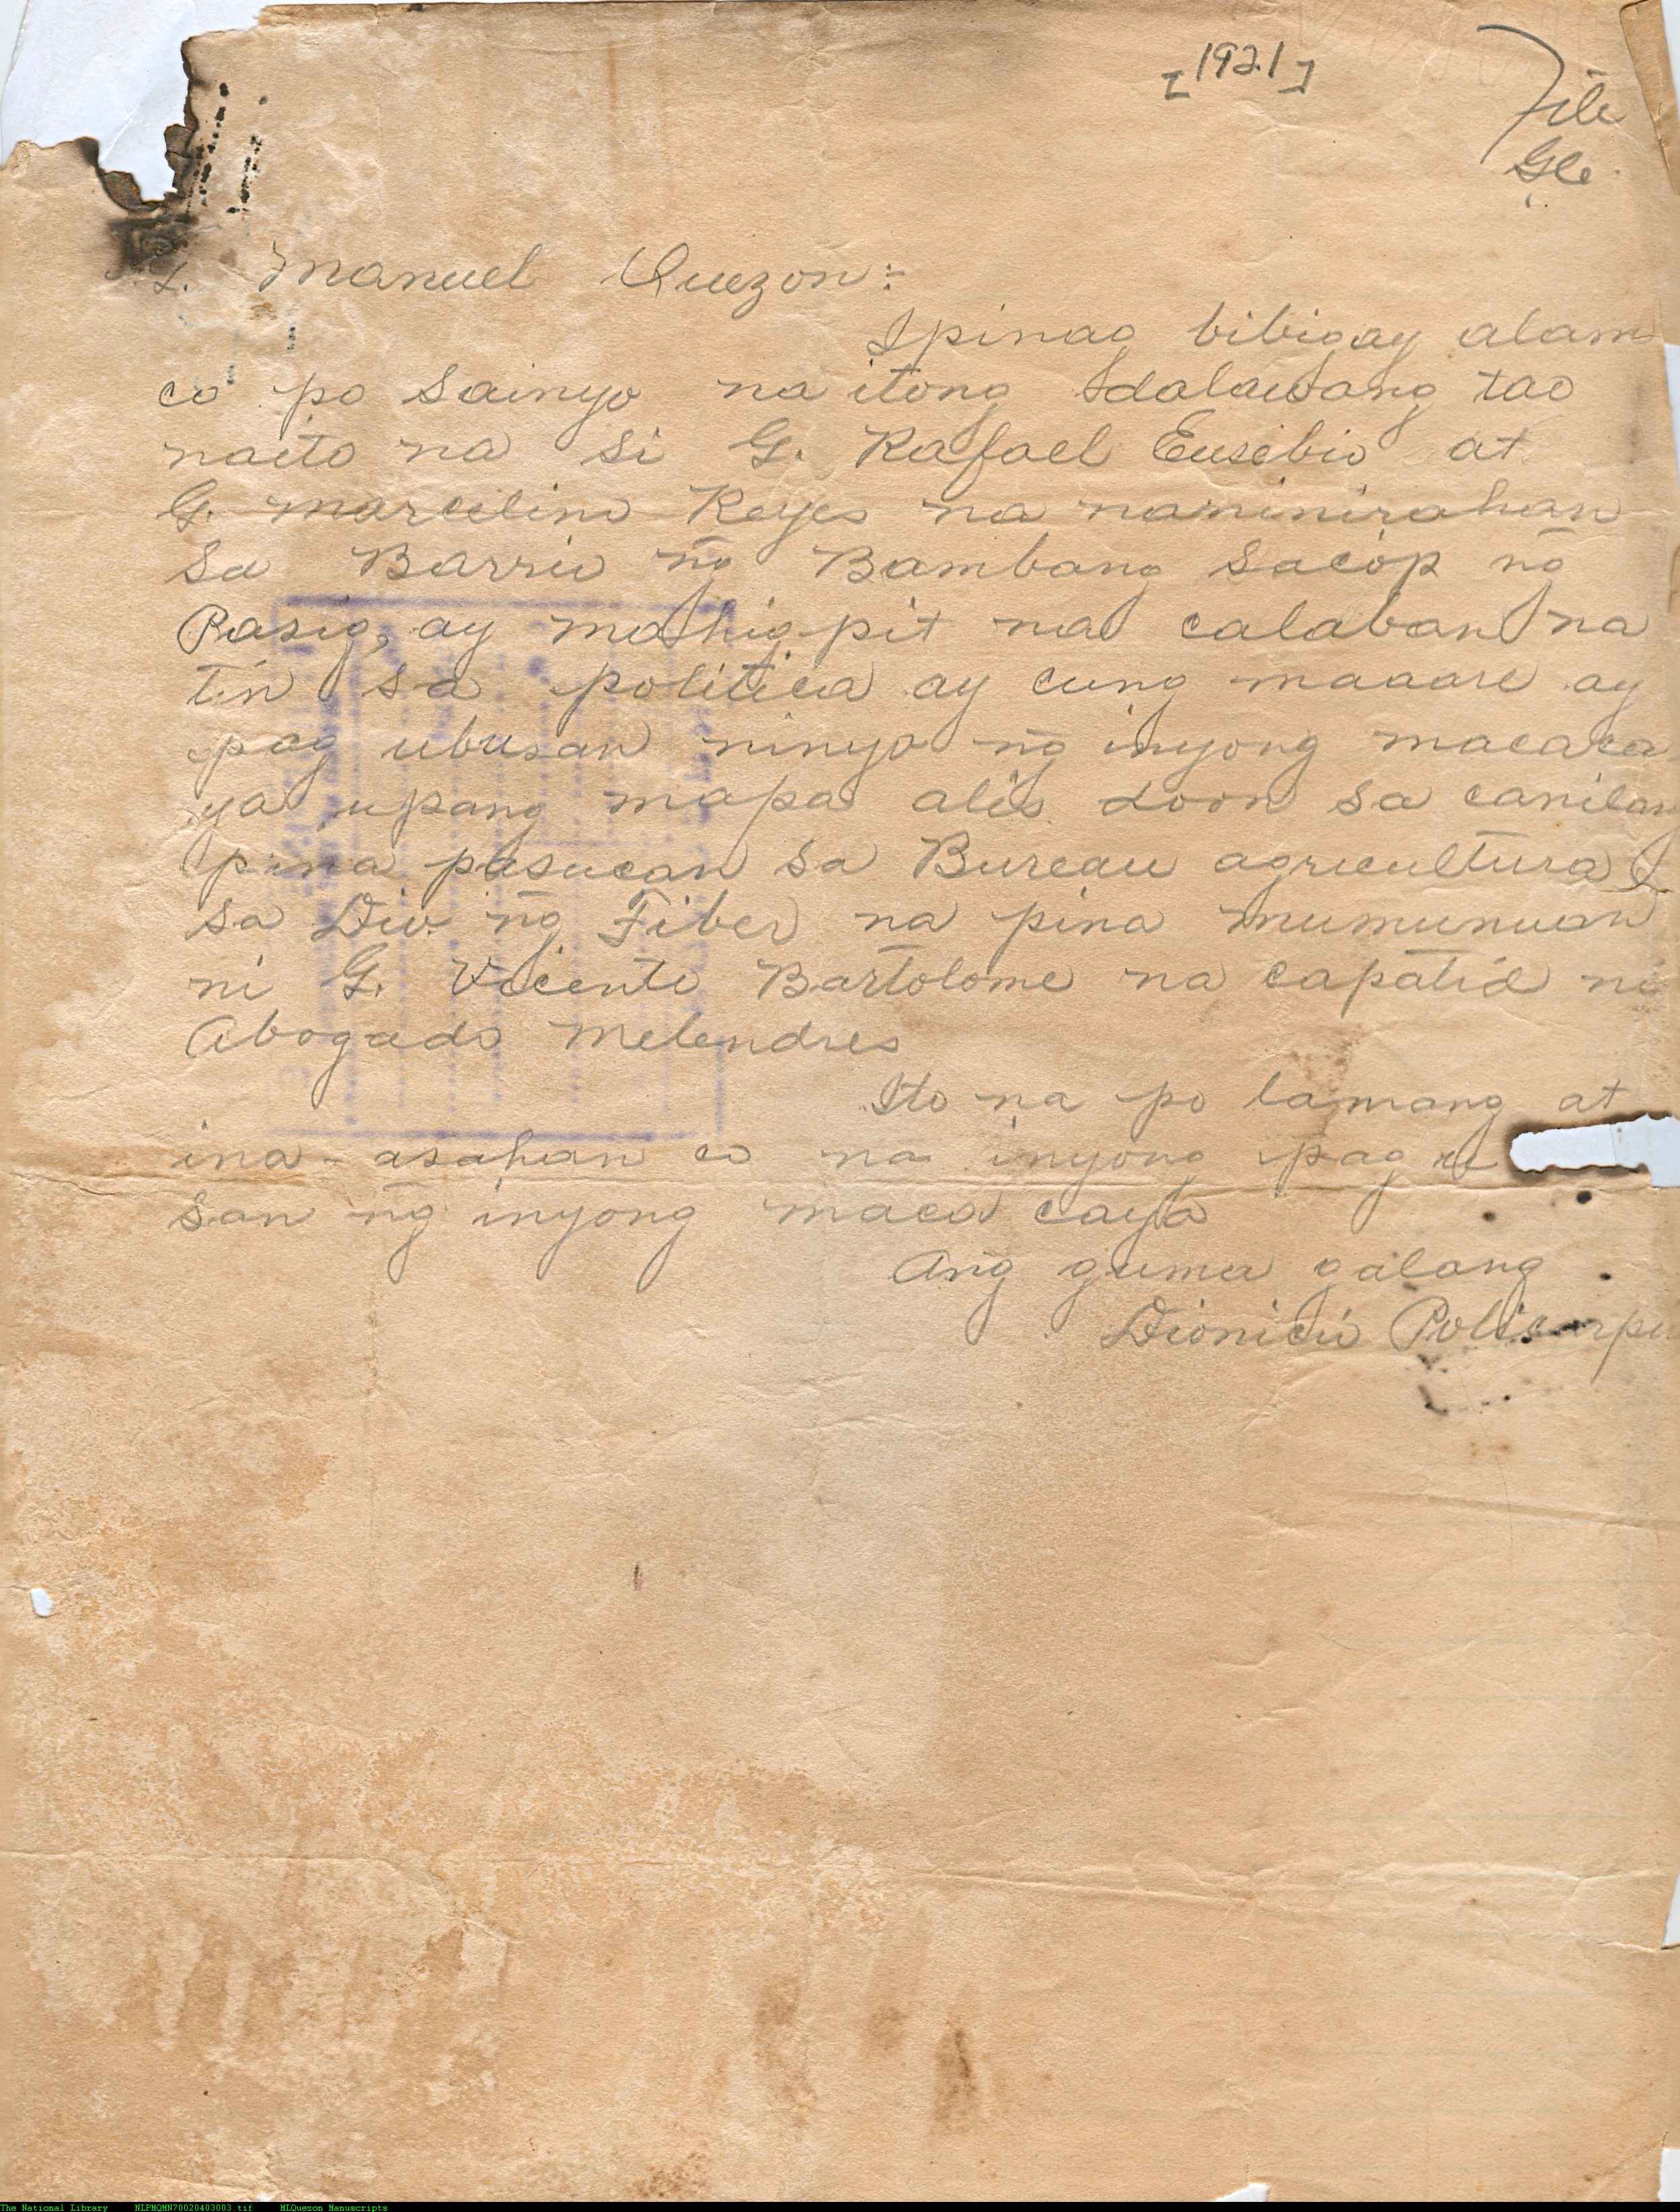 [1921]
File
Manuel Quezon:
Ipinag bibigay alam
co po sainyo na itong dalawang tao
naito na si G. Rafael Eusebio at
G. Marcelino Reyes na naninirahan
sa Barrio n̄g Bambang sacop n̄g
Pasig, ay mahigpit na calaban na
tin sa politica ay cung maaare ay
pag ubusan ninyo n̄g inyong macaca
ya upang mapa alis doon sa canilang
pina pasucan sa Bureau agricultura
sa Div. n̄g Fiber na pina mumunuan
ni G. Vicente Bartolome na capatid ni
Abogado Melendres
Ito na po lamang at
ina-asahan co na inyong pag
san n̄g inyong maca caya
Ang guma galang
Dionicio Policarpio
The National Library NLPMQMN70020403003.tif MLQuezon Manuscripts